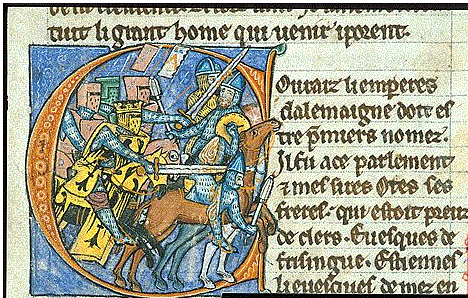 tuit li grant home qui venir iporent.
COnrarz li emperes
dalemaigne doit es
tre p̃miers nomez.
Il fu a ce parlement
⁊ mes sires Otes ses
freres. qui estoit preuz
de clers. Euesques de
frisingue. Estiennes
li euesques de mez en